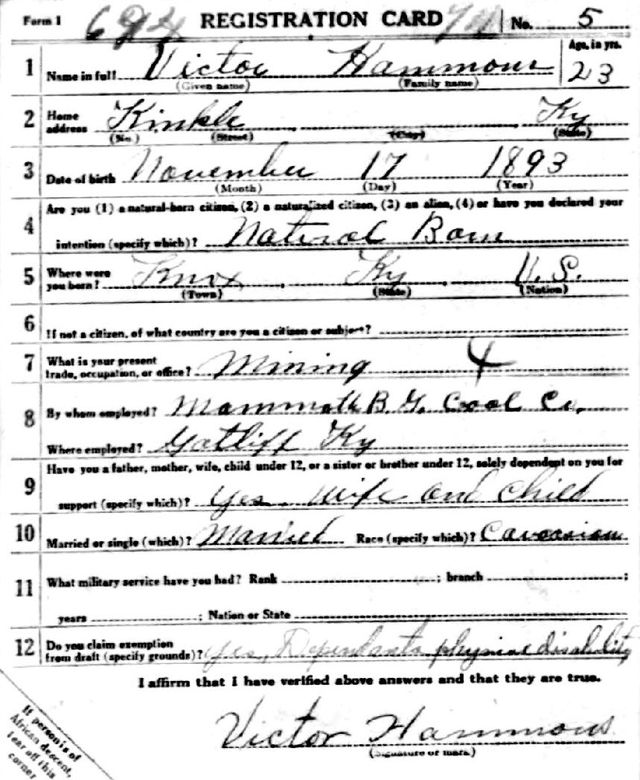 Form 1 624 REGISTRATION CARD No. 5
1 Name in full Victor Hammons Age, in yrs. 23
(Given name) (Family name)
2 Home address Kinkle Ky
(No.) (Street) (City) (State)
3 Date of birth November 17 1893
(Month) (Day) (Year)
4 Are you (1) a natural-born citizen, (2) a naturalized citizen, (3) an alien, (4) or have you declared your
intention (specify which)? Natural Born
5 Where were you born? Knox Ky U.S.
(Town) (State) (Nation)
6 If not a citizen, of what country are you a citizen or subject?
7 What is your present trade, occupation, or office? Mining 4
8 By whom employed? Mammoth B. G. Coal Co.
Where employed? Gatliff Ky
9 Have you a father, mother, wife, child under 12, or a sister or brother under 12, solely dependent on you for
support (specify which)? Yes wife and child
10 Married or single (which)? Married Race (specify which)? Caucasian
11 What military service have you had? Rank ; branch ;
years ; Nation or State
12 Do you claim exemption from draft (specify grounds)? Yes, Dependants disability
I affirm that I have verified above answers and that they are true.
Victor Hammons
(Signature or mark)
If person is of
African descent,
tear off this
corner